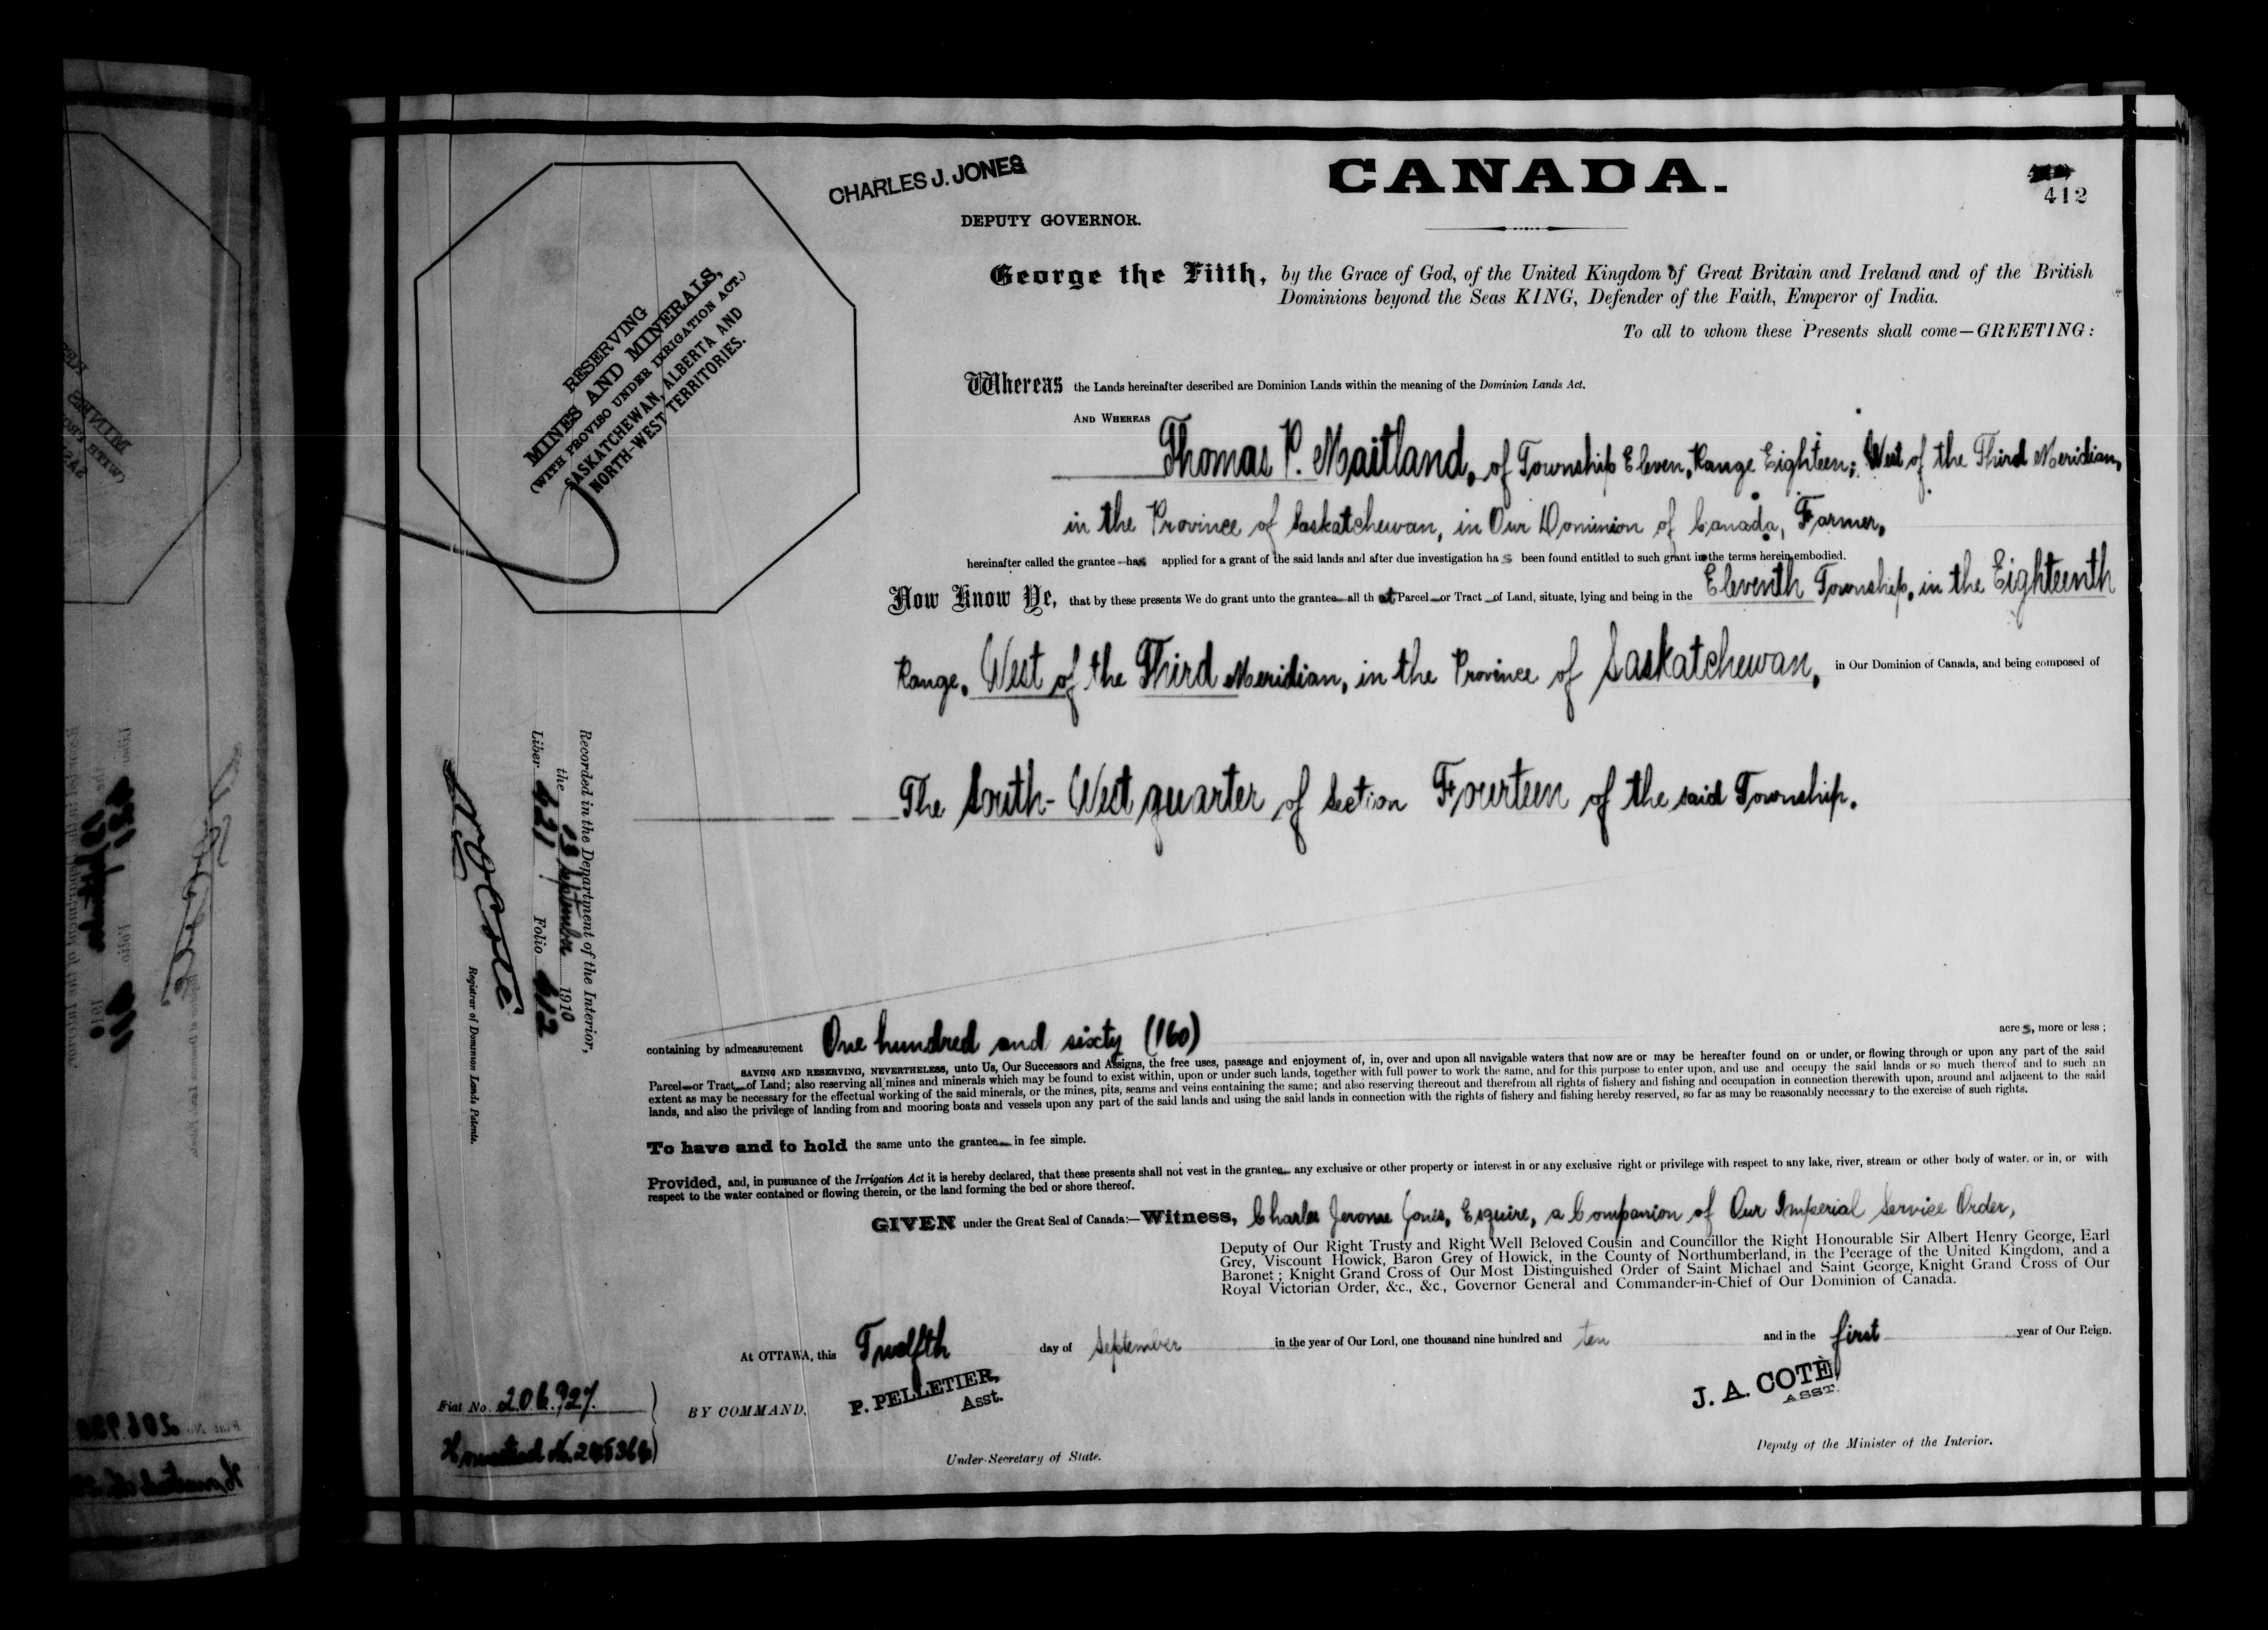 CHARLES J. JONES
CANADA.
412
DEPUTY GOVERNOR.
George the Fifth, by the Grace of God, of the United Kingdom of Great Britain and Ireland and of the British
Dominions beyond the Seas KING, Defender of the Faith, Emperor of India.
To all to whom these Presents shall come—GREETING:
RESERVING
MINES AND MINERALS,
(WITH PROVISO UNDER IRRIGATION ACT.)
SASKATCHEWAN, ALBERTA AND
NORTH-WEST TERRITORIES.
Whereas the Lands hereinafter described are Dominion Lands within the meaning of the Dominion Lands Act.
AND WHEREAS
Thomas P. Maitland, of Township Eleven, Range Eighteen; West of the Third Meridian,
in the Province of Saskatchewan, in Our Dominion of Canada, Farmer,
hereinafter called the grantee has applied for a grant of the said lands and after due investigation has been found entitled to such grant in the terms herein embodied.
Now Know Ye, that by these presents We do grant unto the grantee all that Parcel or Tract of Land, situate, lying and being in the Eleventh Township, in the Eighteenth
Range, West of the Third Meridian, in the Province of Saskatchewan, in Our Dominion of Canada, and being composed of
The South-West quarter of Section Fourteen of the said Township.
Recorded in the Department of the Interior,
the 13 September 1910
Liber 621 Folio 412
N. O. Coté
Registrar of Dominion Lands Patents.
containing by admeasurement One hundred and sixty (160) acres, more or less;
SAVING AND RESERVING, NEVERTHELESS, unto Us, Our Successors and Assigns, the free uses, passage and enjoyment of, in, over and upon all navigable waters that now are or may be hereafter found on or under, or flowing through or upon any part of the said
Parcel or Tract of Land; also reserving all mines and minerals which may be found to exist within, upon or under such lands, together with full power to work the same, and for this purpose to enter upon, and use and occupy the said lands or so much thereof and to such an
extent as may be necessary for the effectual working of the said minerals, or the mines, pits, seams and veins containing the same; and also reserving thereout and therefrom all rights of fishery and fishing and occupation in connection therewith upon, around and adjacent to the said
lands, and also the privilege of landing from and mooring boats and vessels upon any part of the said lands and using the said lands in connection with the rights of fishery and fishing hereby reserved, so far as may be reasonably necessary to the exercise of such rights.
To have and to hold the same unto the grantee in fee simple.
Provided, and, in pursuance of the Irrigation Act it is hereby declared, that these presents shall not vest in the grantee any exclusive or other property or interest in or any exclusive right or privilege with respect to any lake, river, stream or other body of water, or in, or with
respect to the water contained or flowing therein, or the land forming the bed or shore thereof.
GIVEN under the Great Seal of Canada:—Witness, Charles Jerome Jones, Esquire, a Companion of Our Imperial Service Order,
Deputy of Our Right Trusty and Right Well Beloved Cousin and Councillor the Right Honourable Sir Albert Henry George, Earl
Grey, Viscount Howick, Baron Grey of Howick, in the County of Northumberland, in the Peerage of the United Kingdom, and a
Baronet; Knight Grand Cross of Our Most Distinguished Order of Saint Michael and Saint George, Knight Grand Cross of Our
Royal Victorian Order, &c., &c., Governor General and Commander-in-Chief of Our Dominion of Canada.
At OTTAWA, this Twelfth day of September in the year of Our Lord, one thousand nine hundred and ten and in the first year of Our Reign.
P. PELLETIER,
Asst.
J. A. COTÈ
ASST.
Fiat No. 206927.
BY COMMAND,
Under-Secretary of State.
Deputy of the Minister of the Interior.
Homestead No.